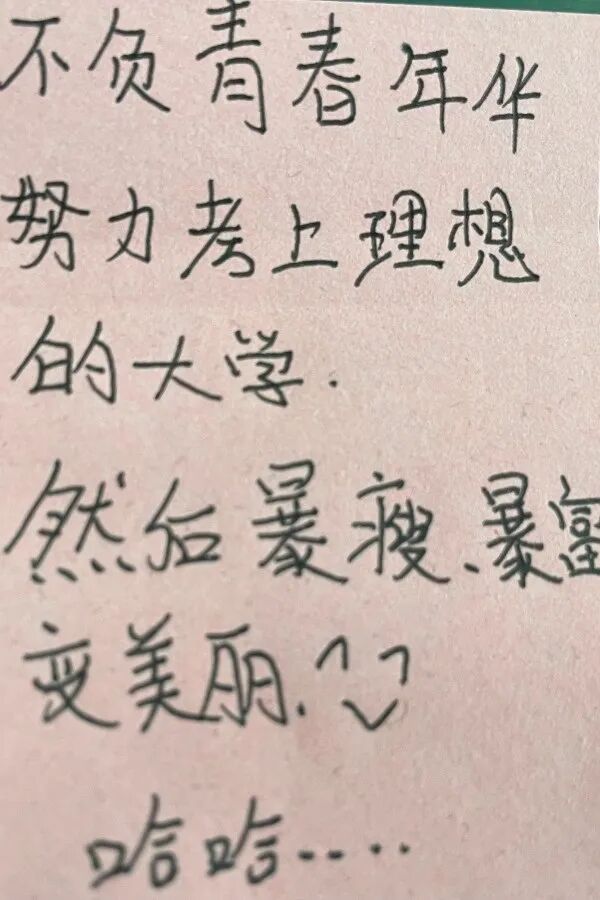 不负青春年华
努力考上理想
的大学.
然后暴瘦、暴富
变美丽.^ᨆ^
哈哈.....